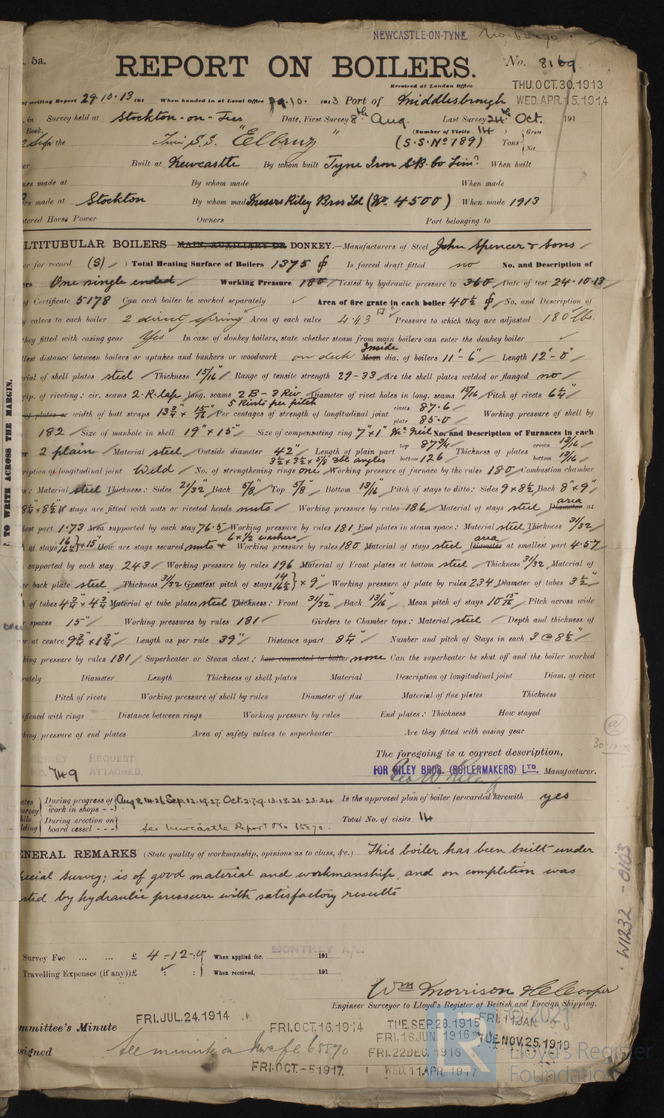 NEWCASTLE-ON-TYNE
5a. REPORT ON BOILERS. No. 8169
Received at London Office THU. OCT. 30. 1913
of writing Report 29.10.13 191 When handed in at Local Office 29.10. 1913 Port of Middlesbrough WED. APR. 15. 1914
in Survey held at Stockton-on-Tees Date, First Survey 8th Aug. Last Survey 24th Oct. 191
Book. (Number of Visits 14) Gross
on the S.S. "Elbruz" (S.S. No 189) Tons Net
Built at Newcastle By whom built Tyne Iron S.B. Co Lim. When built
made at By whom made When made
made at Stockton By whom made Messrs Riley Bros Ltd (No. 4500) When made 1913
Horse Power Owners Port belonging to
LTITUBULAR BOILERS MAIN, AUXILIARY OR DONKEY.—Manufacturers of Steel John Spencer & Sons
for record (S) Total Heating Surface of Boilers 1375 Is forced draft fitted no No. and Description of
One single ended Working Pressure 180 Tested by hydraulic pressure to 360 Date of test 24.10.13
of Certificate 5178 Can each boiler be worked separately Area of fire grate in each boiler 40½ No. and Description of
valves to each boiler 2 direct spring Area of each valve 4.43 Pressure to which they are adjusted 180 lbs.
they fitted with easing gear Yes In case of donkey boilers, state whether steam from main boilers can enter the donkey boiler
distance between boilers or uptakes and bunkers or woodwork on deck Inside Mean dia. of boilers 11'-6" Length 12'-0"
of shell plates steel Thickness 15/16 Range of tensile strength 29-33 Are the shell plates welded or flanged no
of riveting: cir. seams 2.R.lap long. seams 2 B-3 Riv Diameter of rivet holes in long. seams 15/16 Pitch of rivets 6¼
5 Rivets per pitch
or width of butt straps Per centages of strength of longitudinal joint rivets 87.6 plate 85.0 Working pressure of shell by
182 Size of manhole in shell 19" x 15" Size of compensating ring 7" x 1" No. and Description of Furnaces in each
2 plain Material steel Outside diameter 42" Length of plain part bottom 126 Thickness of plates crown bottom
of longitudinal joint Weld No. of strengthening rings one Working pressure of furnace by the rules 180 Combustion chamber
Material steel Thickness: Sides 21/32 Back 5/8 Top 5/8 Bottom 13/16 Pitch of stays to ditto: Sides 9 x 8½ Back 8" x 9"
stays are fitted with nuts or riveted heads nuts Working pressure by rules 186 Material of stays steel Diameter area at
part 1.73 Area supported by each stay 76.5 Working pressure by rules 181 End plates in steam space: Material steel Thickness 31/32
6 x ½ washers
of stays How are stays secured nuts & Working pressure by rules 180 Material of stays steel Diameter area at smallest part 4.57
supported by each stay 243 Working pressure by rules 196 Material of Front plates at bottom steel Thickness 31/32 Material of
back plate steel Thickness 31/32 Greatest pitch of stays x 9" Working pressure of plate by rules 234 Diameter of tubes 3½
of tubes 4¾ x 4¾ Material of tube plates steel Thickness: Front 31/32 Back 13/16 Mean pitch of stays Pitch across wide
spaces 15" Working pressures by rules 181 Girders to Chamber tops: Material steel Depth and thickness of
at centre Length as per rule 39" Distance apart Number and pitch of Stays in each 3 @ 8½
pressure by rules 181 Superheater or Steam chest; how connected to boiler none Can the superheater be shut off and the boiler worked
Diameter Length Thickness of shell plates Material Description of longitudinal joint Diam. of rivet
Pitch of rivets Working pressure of shell by rules Diameter of flue Material of flue plates Thickness
with rings Distance between rings Working pressure by rules End plates: Thickness How stayed
pressure of end plates Area of safety valves to superheater Are they fitted with easing gear
The foregoing is a correct description,
REQUEST
NO. 749 ATTACHED.
FOR RILEY BROS. (BOILERMAKERS) LTD. Manufacturer.
During progress of work in shops Aug 8.14.26 Sep. 12.19.27. Oct. 2.7.9.13.18.21.23.24 Is the approved plan of boiler forwarded herewith yes
During erection on board vessel See Newcastle Report No. 65570 Total No. of visits 14
GENERAL REMARKS (State quality of workmanship, opinions as to class, &c.) This boiler has been built under
special survey; is of good material and workmanship, and on completion was
tested by hydraulic pressure with satisfactory results
TO WRITE ACROSS THE MARGIN.
W1232-0103
Survey Fee £ 4-12-0 When applied for, MONTHLY A/C 191
Travelling Expenses (if any) £ When received, 191
Wm Morrison
Engineer Surveyor to Lloyd's Register of British and Foreign Shipping.
Committee's Minute FRI. JUL. 24. 1914 FRI. OCT. 16. 1914 TUE. SEP. 28. 1915 FRI. 11 JAN
FRI. 16 JUN. 1916 TUE. NOV. 25. 1919
Assigned See minute on Nwc fe 65570 FRI. 22 DEC. 1916
FRI. OCT. -5 1917. WED. 11 APR. 1917
© 2021
Lloyd's Register
Foundation